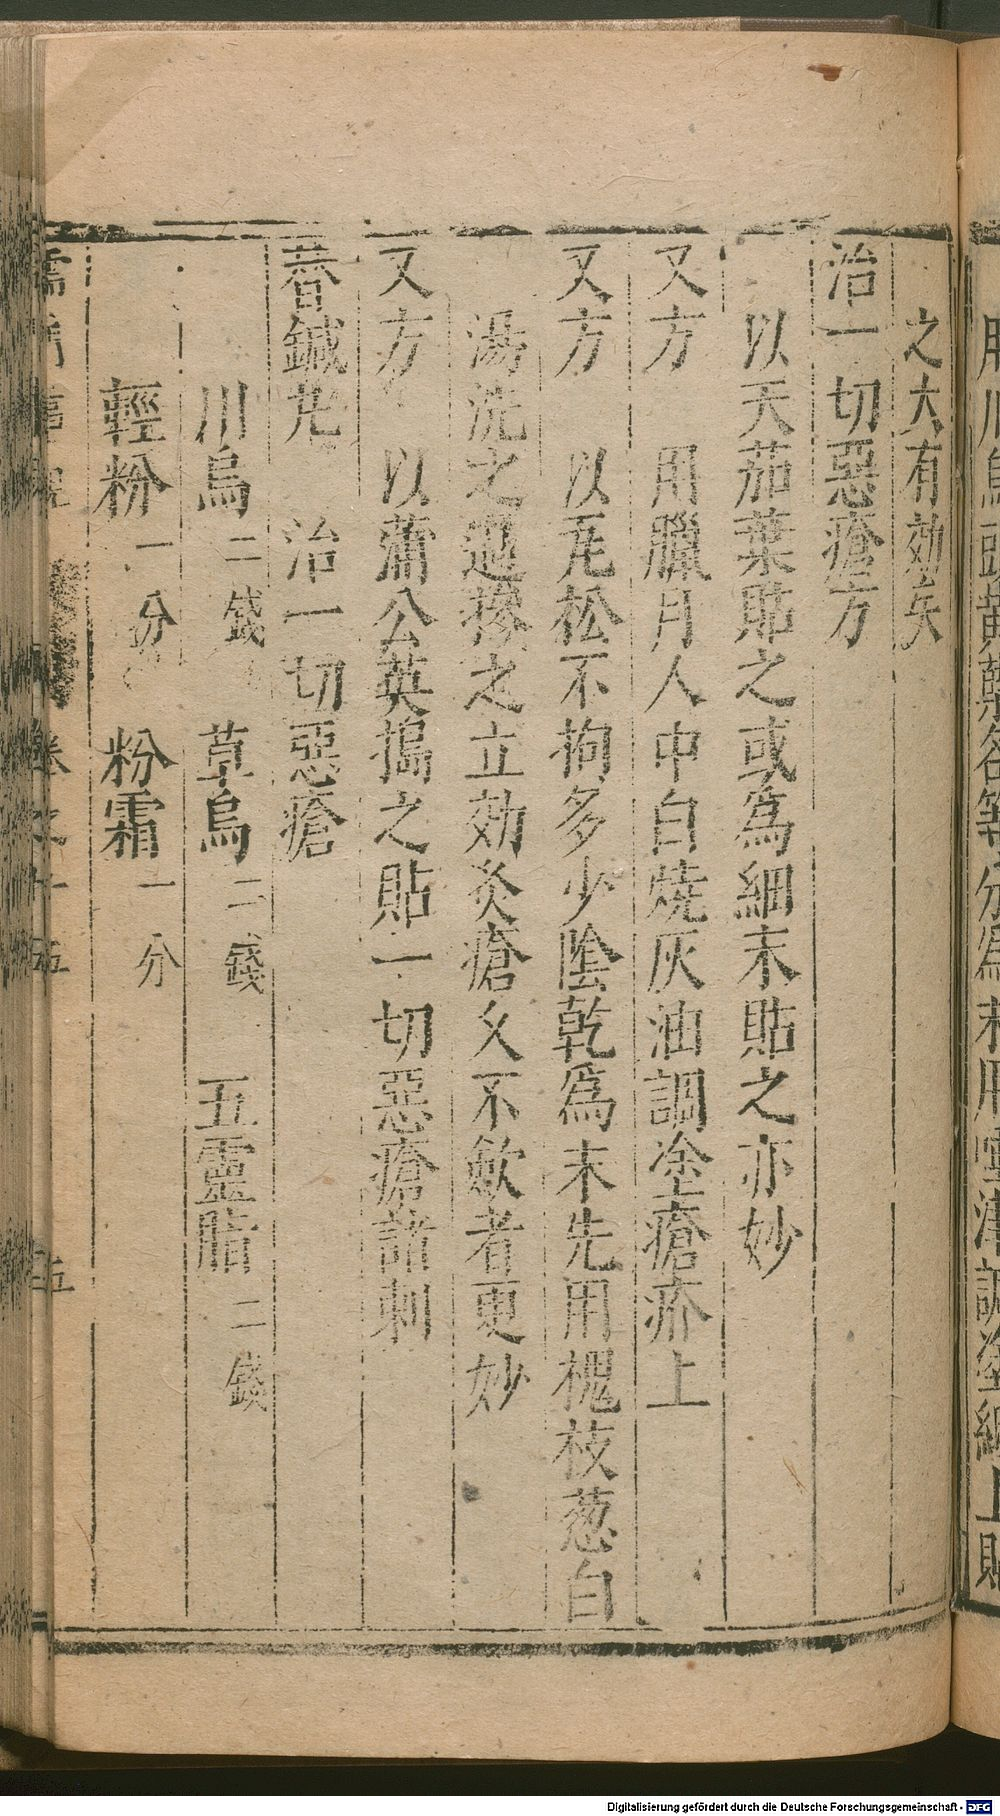 之大有効矣
治一切惡瘡方
以天茄葉貼之或爲細末貼之亦妙
又方 用臘月人中白燒灰油調塗瘡疥上
又方 以瓦松不拘多少陰乾爲末先用槐枝葱白
湯洗之過摻之立効灸瘡久不歛者更妙
又方 以蒲公英搗之貼一切惡瘡諸刺
替鍼丸 治一切惡瘡
川烏二錢 草烏二錢 五靈脂二錢
輕粉一分 粉霜一分
卷之十五 五
Digitalisierung gefördert durch die Deutsche Forschungsgemeinschaft - DFG